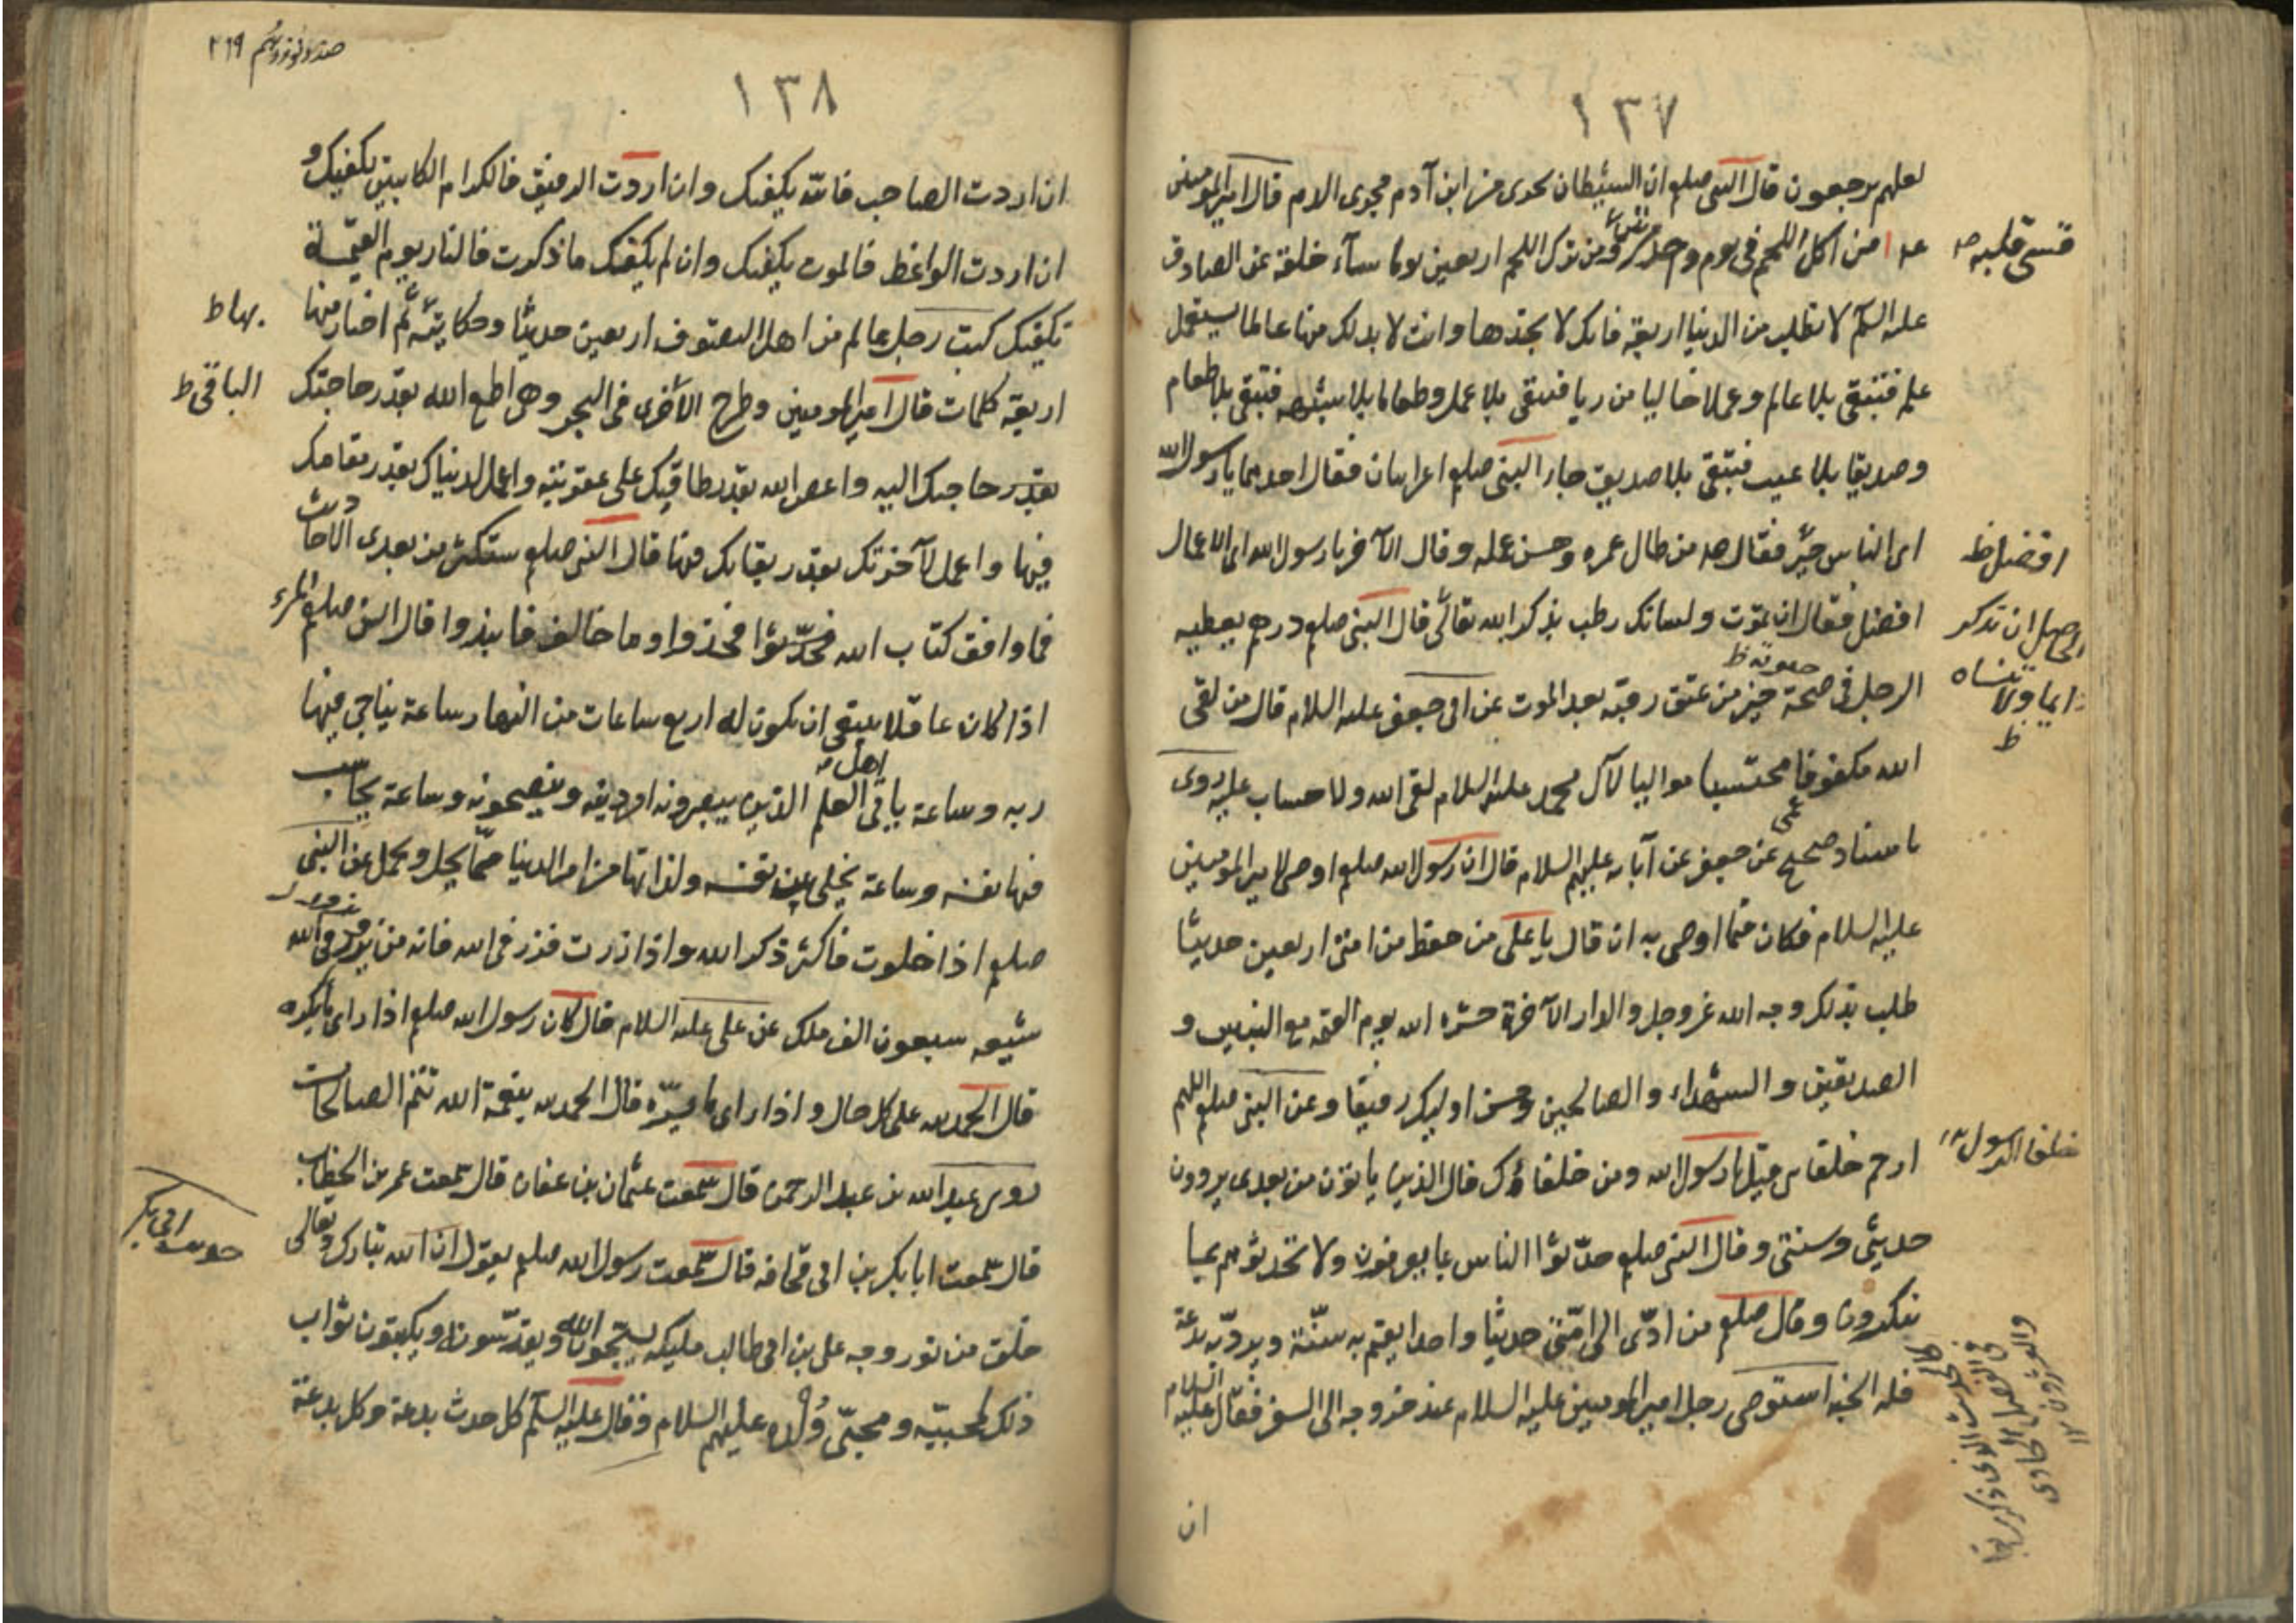 ١٣٧
لعلهم يرجعون قال النبى صلعم ان الشيطان يجرى من ابن آدم مجرى الدم قال امير المومنين
عه من اكل اللحم فى يوم ومن ترك اللحم اربعين يوما ساء خلقه عن الصادق
قسى قلبه صه
عليه السلم لا تطلب من الدنيا اربعة فانك لا تجدها وانت لا بد لك منها عالما يستعمل
علمه فتبقى بلا عالم وعملا خاليا من ريا فتبقى بلا عمل وطعاما بلا شبهه فتبقى بلا طعام
وصديقا بلا عيب فتبقى بلا صديق جاء النبى صلعم اعرابيان فقال احدهما يا رسول الله
اى الناس خير فقال صه من طال عمره وحسن عمله وقال الآخر يا رسول الله اى الاعمال
افضل ظ
افضل فقال ان تموت ولسانك رطب بذكر الله تعالى قال النبى صلعم درهم يعطيه
الرجل فى صحة خير من عتق رقبة بعد الموت عن ابى جعفر عليه السلام قال من لقى
الله مكفوفا محتسبا مواليا لآل محمد عليه السلام لقى الله ولا حساب عليه روى
باسناد صحيح عن جعفر عن آبائه عليهم السلام قال ان رسول الله صلعم اوصى لامير المومنين
عليه السلام فكان فيما اوصى به ان قال يا على من حفظ من امتى اربعين حديثا
طلب بذلك وجه الله عز وجل والدار الآخرة حشره الله يوم القيمة مع النبيين و
الصديقين والشهداء والصالحين وحسن اوليك رفيقا وعن النبى صلعم اللهم
ارحم خلفاى قيل يا رسول الله ومن خلفاؤك قال الذين ياتون من بعدى يروون
خلفا الرسول
حديثى وسنتى وقال النبى صلعم حدثوا الناس بما يعرفون ولا تحدثوهم بما
ينكرون وقال صلعم من ادى الى امتى حديثا واحدا يقيم به سنة ويرد به بدعة
فله الجنة استوصى رجل امير المومنين عليه السلام عند خروجه الى السفر فقال عليه السلام
ان
١٣٨
٢٦٩
ان اردت الصاحب فالله يكفيك وان اردت الرفيق فالكرام الكاتبين يكفيك و
ان اردت الواعظ فالموت يكفيك وان لم يكفك ما ذكرت فالنار يوم القيمة
تكفيك كتب رجل عالم من اهل التصوف اربعين حديثا وحكاية ثم اختار منها
بها ط
اربعة كلمات قال امير المومنين وطرح الأخرى فى البحر وهى اطع الله بقدر حاجتك
الباقى ط
بقدر حاجتك اليه واعص الله بقدر طاقتك على عقوبته واعمل لدنياك بقدر مقامك
فيها واعمل لآخرتك بقدر بقائك فيها قال النبى صلعم ستكثر من بعدى الاحاديث
فما وافق كتاب الله فحدثوا فخذوا وما خالف فانبذوا قال النبى صلعم المرء
اذا كان عاقلا ينبغى ان يكون له اربع ساعات من النهار ساعة يناجى فيها
ربه وساعة ياتى اهل العلم الذين يبصرونه امر دينه وينصحونه وساعة يحاسب
فيها نفسه وساعة يخلى بين نفسه ولذاتها من امر الدنيا مما يحل ويجمل عن النبى
صلعم اذا خلوت فاكثر ذكر الله واذا زرت فزر فى الله فانه من يزور فى الله
شيعه سبعون الف ملك عن على عليه السلام قال كان رسول الله صلعم اذا راى ما يكره
قال الحمد لله على كل حال واذا راى ما يسره قال الحمد لله بنعمة الله تتم الصالحات
روى عبد الله بن عبد الرحمن قال سمعت عثمان بن عفان قال سمعت عمر بن الخطاب
قال سمعت ابا بكر بن ابى قحافه قال سمعت رسول الله صلعم يقول ان الله تبارك وتعالى
حديث ابى بكر
خلق من نور وجه على بن ابى طالب مليكه يسبحون الله ويقدسونه ويكتبون ثواب
ذلك لمحبيه ومحبى ولده عليهم السلام وقال عليه السلم كل حدث بدعة وكل بدعة